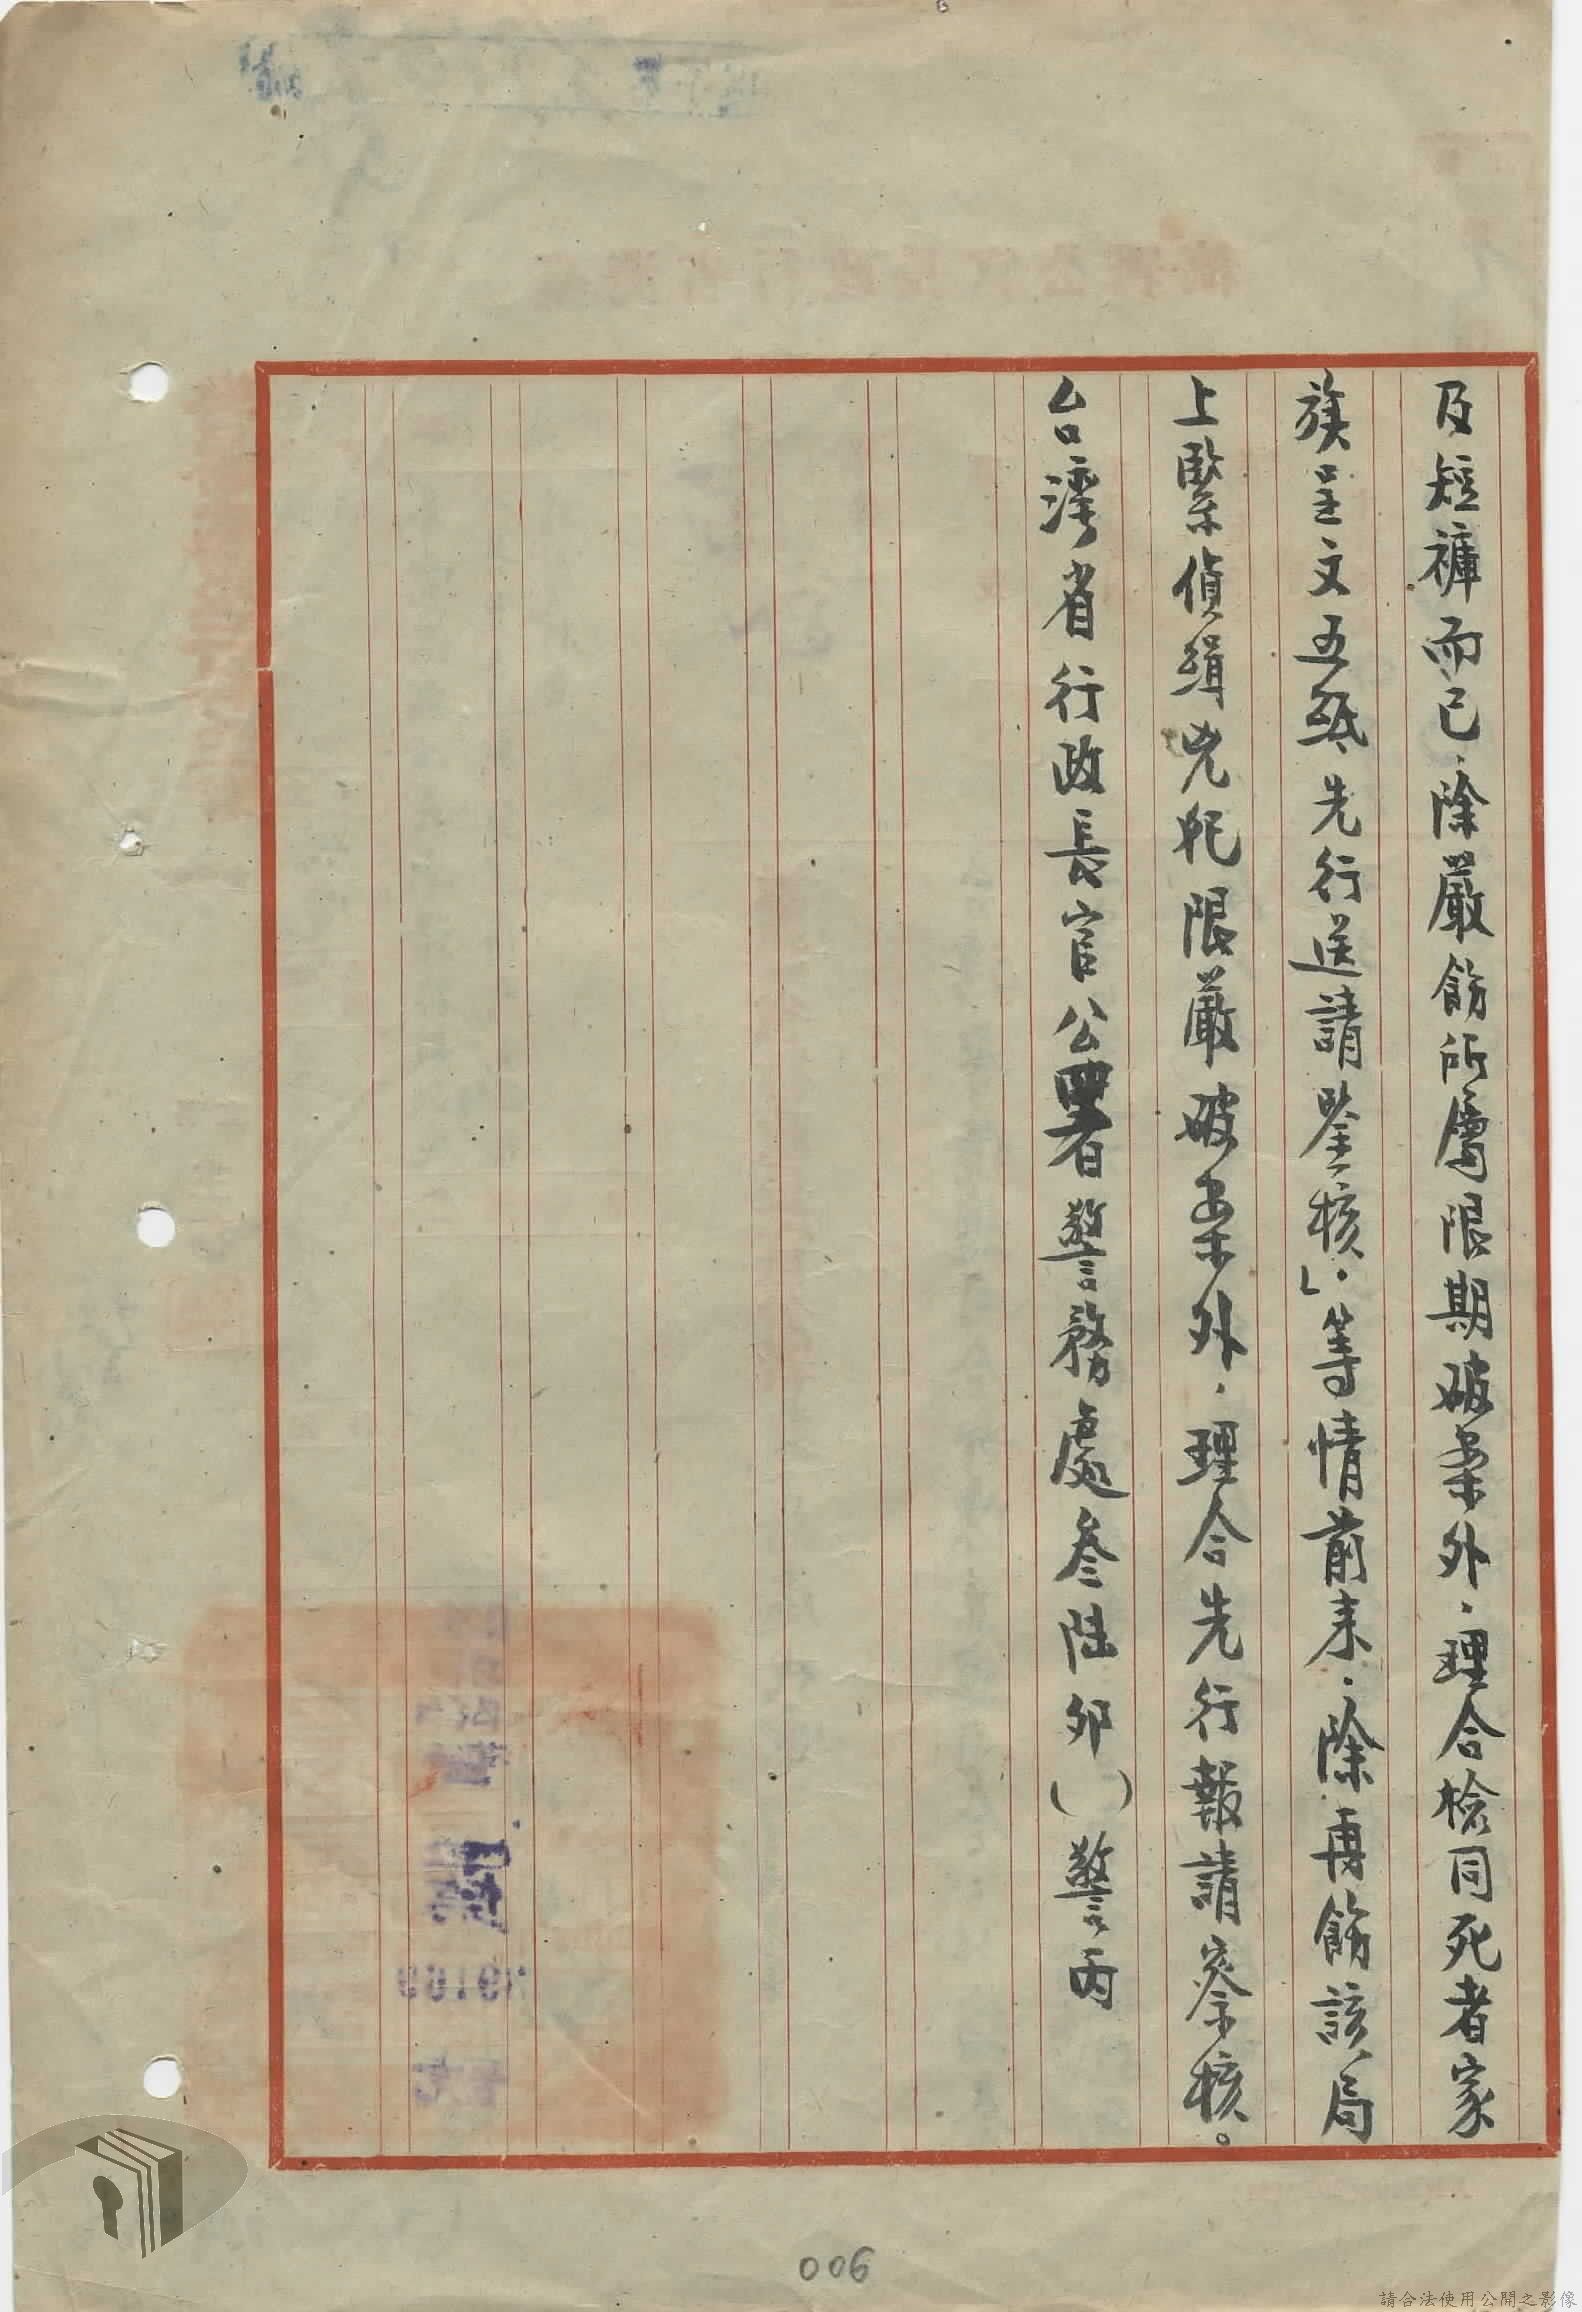 及短褲而已，除嚴飭所屬限期破案外，理合檢同死者家
族呈文五紙先行送請鑒核」。等情前来，除再飭該局
上緊偵緝兇犯限嚴破案外，理合先行報請察核。
台灣省行政長官公署警務處叁陆卯（）警丙
006
請合法使用公開之影像